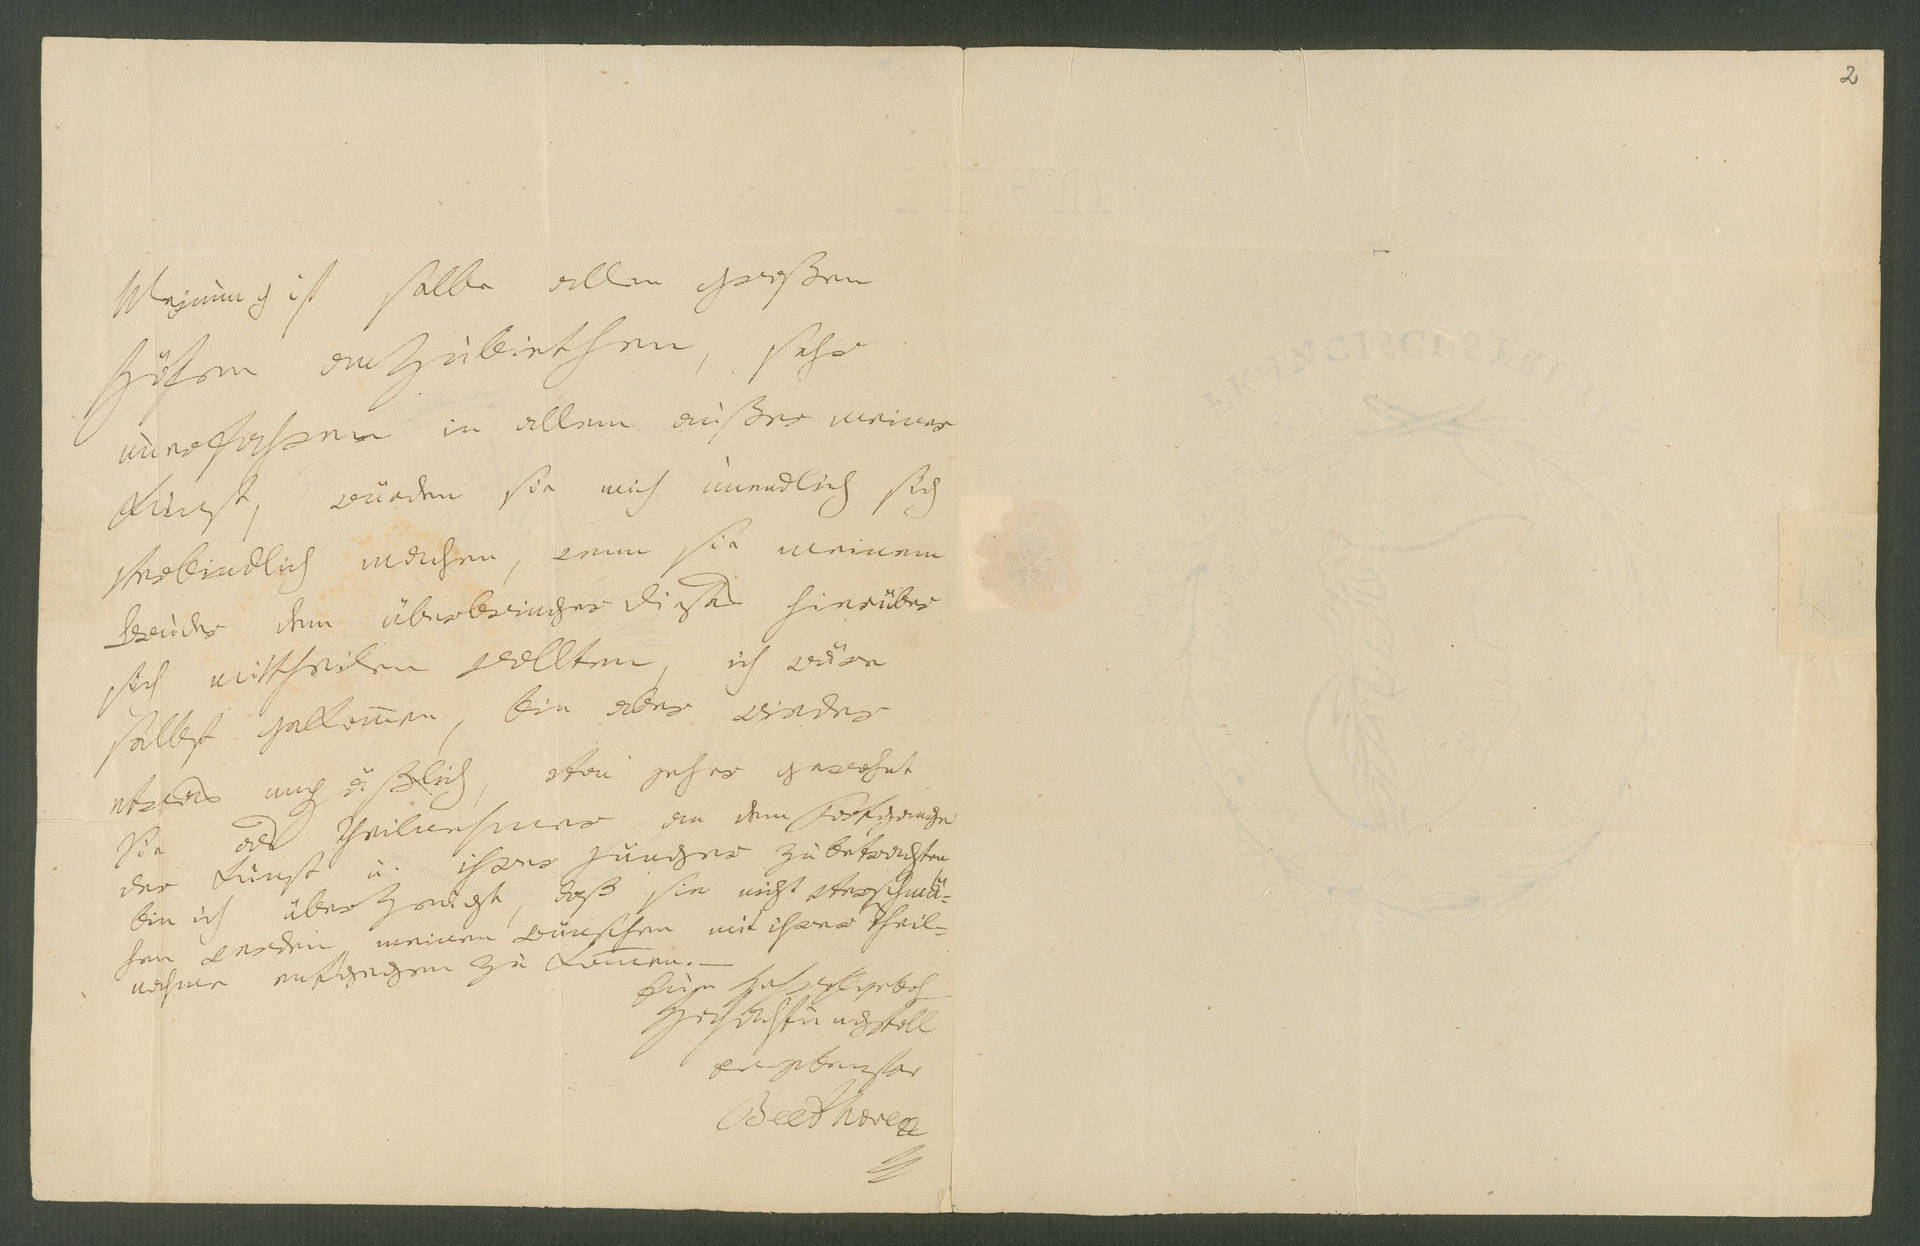 2
Meinung ist selbe allen großen
Höfen anzubiethen, sehr
unerfahren in allem außer meiner
Kunst, würden sie mich unendlich sich
verbindlich machen, wenn sie meinem
Bruder dem überbringer dieses hierüber
sich mittheilen wollten, ich wäre
selbst gekommen, bin aber wieder
etwas unpäßlich, von jeher gewohnt
Sie als Theilnehmer an dem Fortgange
der Kunst u. ihrer jünger zu betrachten
bin ich überzeugt, daß sie nicht verschmä-
hen werden meinen wünschen mit ihrer Theil-
nahme entgegen zu kommen.—
Euer
Hochachtungsvoll
ergebenster
Beethoven